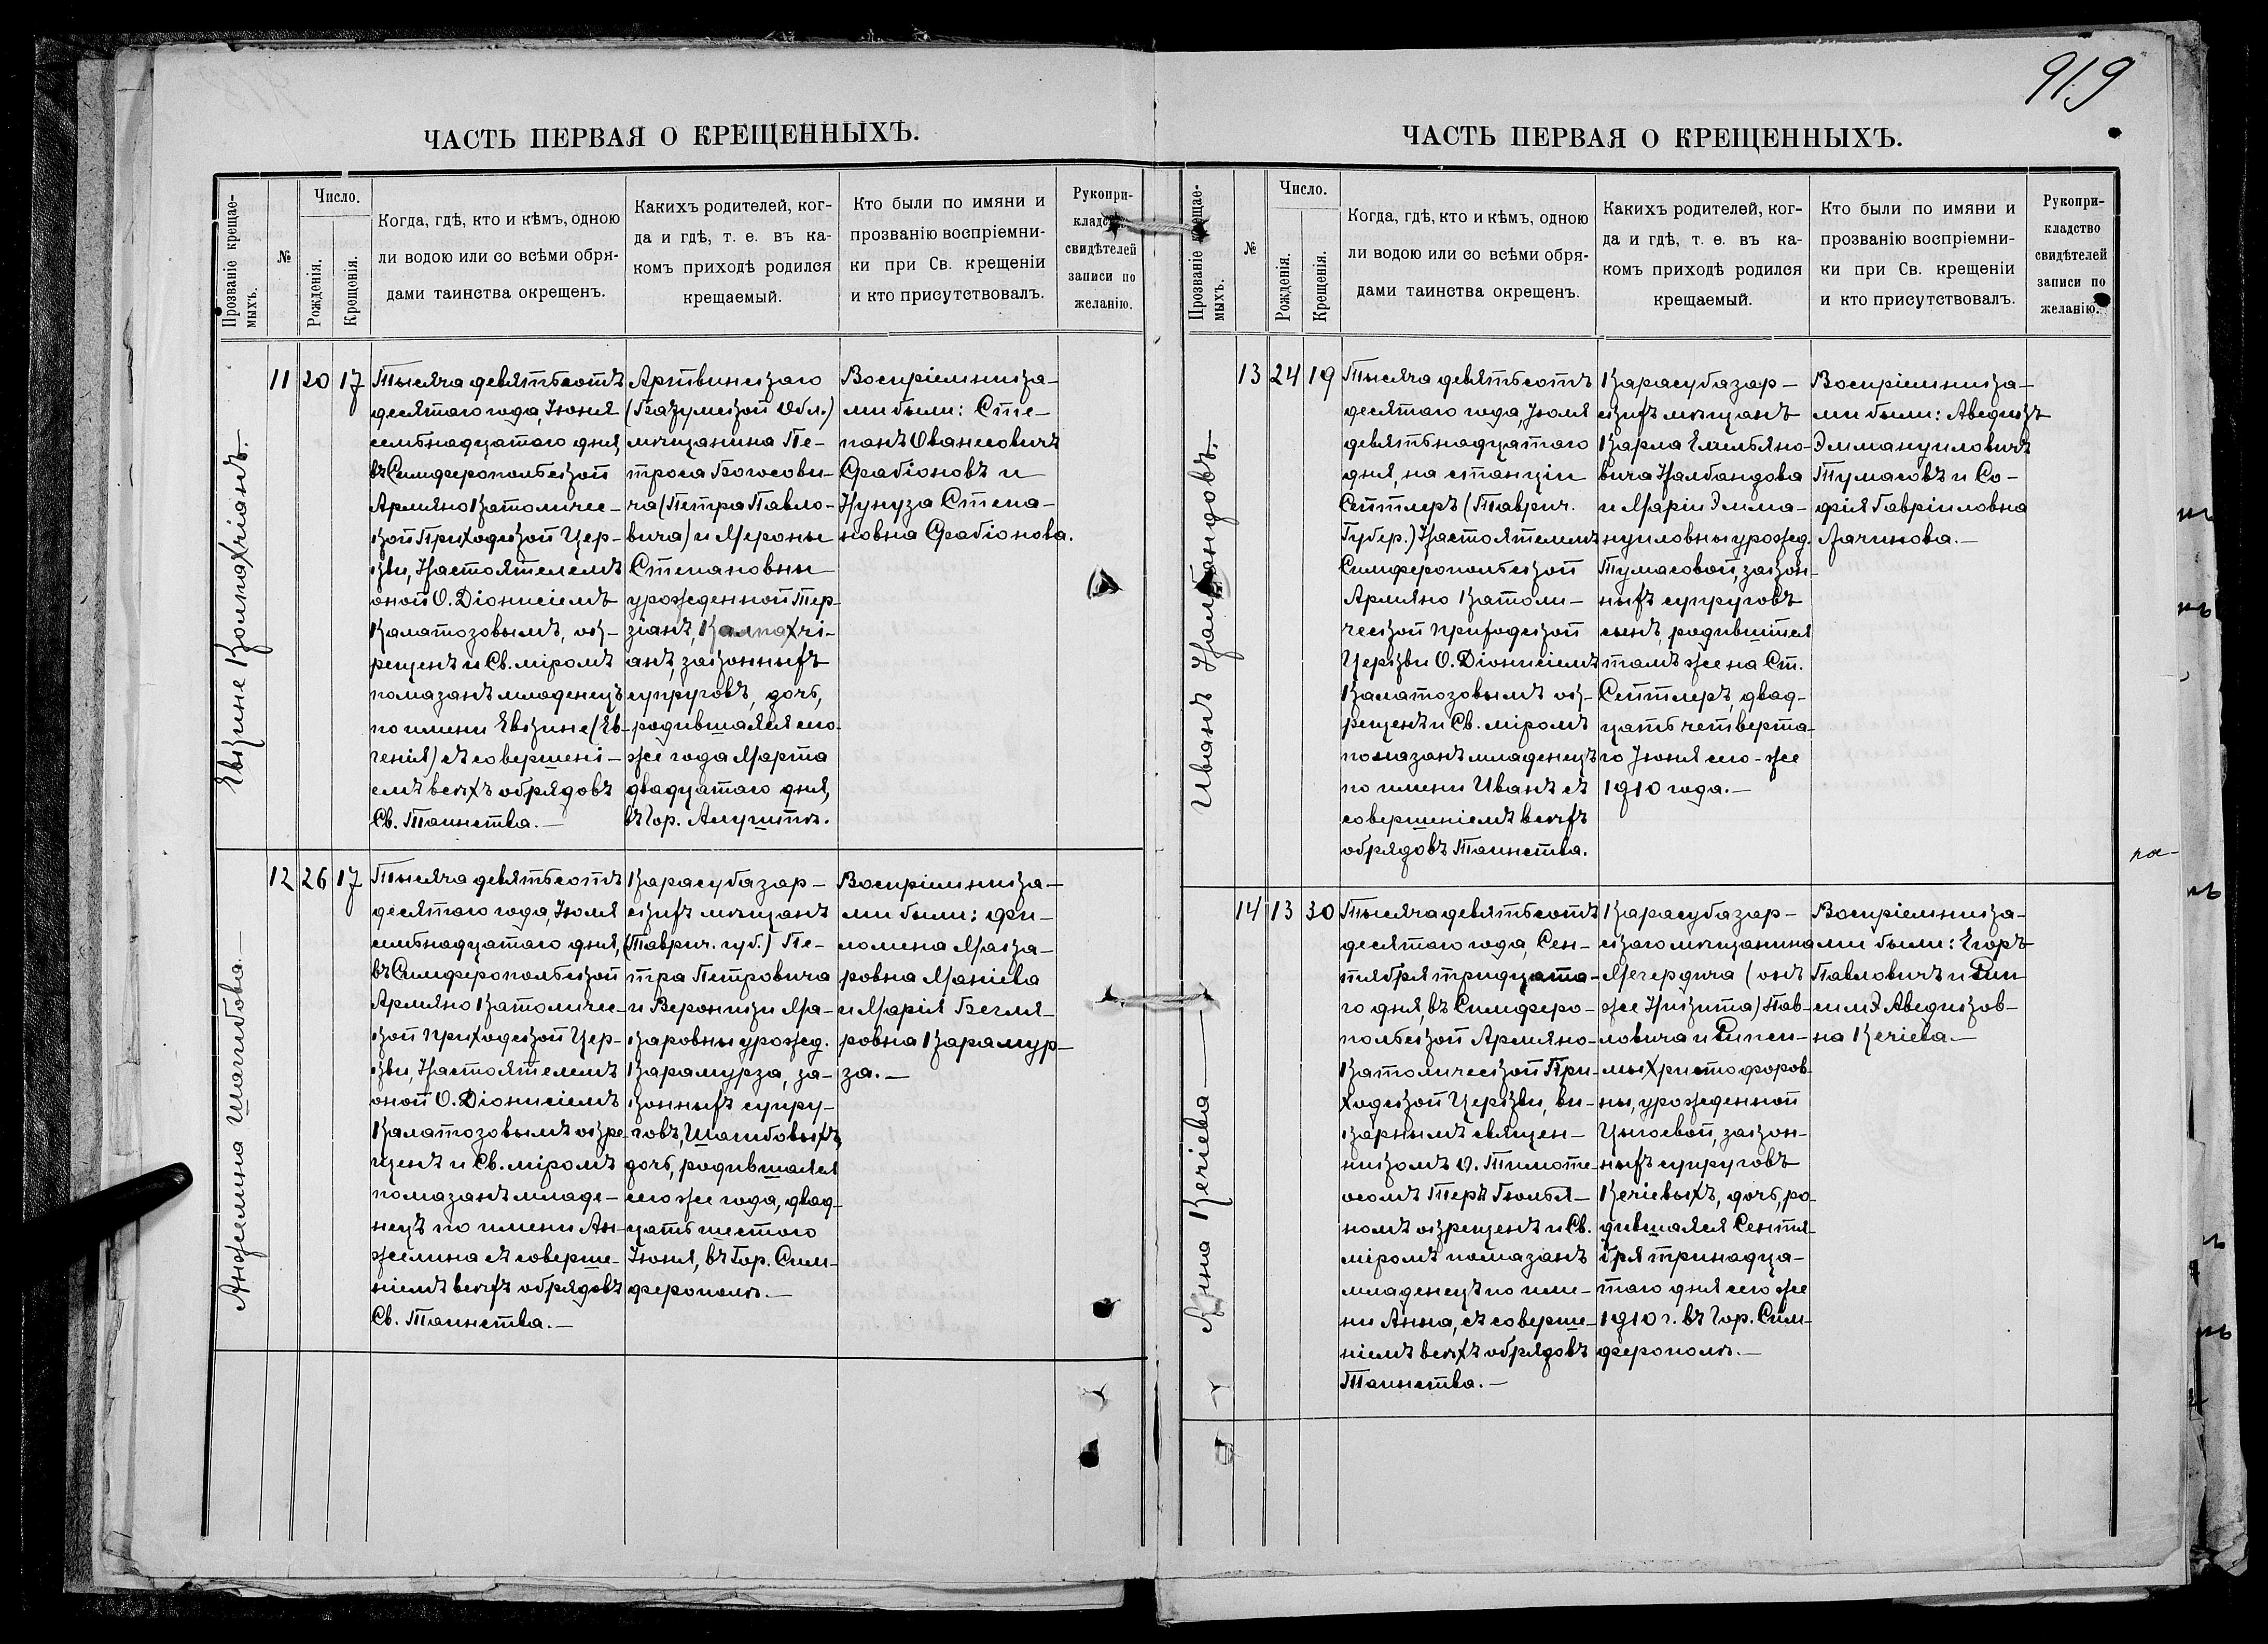 919
ЧАСТЬ ПЕРВАЯ О КРЕЩЕННЫХЪ.
Прозваніе крещае-
мыхъ.
№
Число.
Рожденія.
Крещенія.
Когда, гдѣ, кто и кѣмъ, одною
ли водою или со всѣми обря-
дами таинства окрещенъ.
Какихъ родителей, ког-
да и гдѣ, т. е. въ ка-
комъ приходѣ родился
крещаемый.
Кто были по имяни и
прозванію воспріемни-
ки при Св. крещеніи
и кто присутствовалъ.
Рукопри-
кладство
свидѣтелей
записи по
желанію.
Евкине Колпахчіанъ.
11
20
17
Тысяча девятьсотъ
десятаго года, Іюля
семьнадцатаго дня,
въ Симферопольской
Армяно Католичес-
кой Приходской Цер-
кви, Настоятелемъ
оной О. Діонисіемъ
Калатозовымъ, ок-
рещенъ и Св. міромъ
помазанъ младенецъ
по имени Евкине (Ев-
генія) съ совершені-
емъ всѣхъ обрядовъ
Св. Таинства.—
Артвинскаго
мѣщанина Пе-
троса Погосови-
ча (Петра Павло-
вича) и Мероны
Степановны
урожденной Тер-
зіанъ,
анъ, законныхъ
супруговъ, дочь,
родившаяся сего
же года Марта
двадцатаго дня,
въ Гор. Алуштѣ.
Воспріемника-
ми были: Сте-
панъ Ованесовичъ
Срабіоновъ и
Нунуза Степа-
новна Срабіонова.
Анжелина Шагибова.—
12
26
17
Тысяча девятьсотъ
десятаго года, Іюля
семьнадцатаго дня,
въ Симферопольской
Армяно Католичес-
кой приходской Цер-
кви, Настоятелемъ
оной О. Діонисіемъ
Калатозовымъ окре-
щенъ и Св. міромъ
помазанъ младе-
нецъ по имени Ан-
желина съ соверше-
ніемъ всѣхъ обрядовъ
Св. Таинства.—
Карасубазар-
скихъ мѣщанъ
(Таврич. губ.) Пе-
тра Петровича
и Вероники Ма-
каровны урожд.
Карамурза, за-
конныхъ супру-
говъ, Шагибовыхъ,
дочь, родившаяся
сего же года, двад-
цать шестого
Іюня, въ Гор. Сим-
ферополѣ.—
Воспріемника-
ми были: Фи-
ломена Мака-
ровна Маніева
и Марія Бегля-
ровна Карамур-
за.—
ЧАСТЬ ПЕРВАЯ О КРЕЩЕННЫХЪ.
Прозваніе крещае-
мыхъ.
№
Число.
Рожденія.
Крещенія.
Когда, гдѣ, кто и кѣмъ, одною
ли водою или со всѣми обря-
дами таинства окрещенъ.
Какихъ родителей, ког-
да и гдѣ, т. е. въ ка-
комъ приходѣ родился
крещаемый.
Кто были по имяни и
прозванію воспріемни-
ки при Св. крещеніи
и кто присутствовалъ.
Рукопри-
кладство
свидѣтелей
записи по
желанію.
Иванъ Налбандовъ.—
13
24
19
Тысяча девятьсотъ
десятаго года, Іюля
девятьнадцатаго
дня, на станціи
Сейтлеръ (Таврич.
Губер.) Настоятелемъ
Симферопольской
Армяно Католи-
ческой приходской
Церкви О. Діонисіемъ
Калатозовымъ ок-
рещенъ и Св. міромъ
помазанъ младенецъ
по имени Иванъ съ
совершеніемъ всѣхъ
обрядовъ Таинства.
Карасубазар-
скихъ мѣщанъ
Карла Емельяно-
вича Налбандова
и Маріи Эмма-
нуиловны урожд.
Тумасовой, закон-
ныхъ супруговъ
сынъ, родившійся
тамъ же на Ст.
Сейтлеръ, двад-
цать четверта-
го Іюня сего-же
1910 года.—
Воспріемника-
ми были: Аведикъ
Эммануиловичъ
Тумасовъ и Со-
фія Гавріиловна
Лачинова.—
Анна Кечіева
14
13
30
Тысяча девятьсотъ
десятаго года, Сен-
тября тридцата-
го дня, въ Симферо-
польской Армяно-
Католической При-
ходской Церкви, ви-
карнымъ священ-
никомъ О. Тимоте-
осомъ Теръ
номъ окрещенъ и Св.
міромъ помазанъ
младенецъ по име-
ни Анна, съ соверше-
ніемъ всѣхъ обрядовъ
Таинства.—
Карасубазар-
скаго мѣщанина
Мегердича (онъ
же Никита) Пав-
ловича и Рипси-
мы Христофоров-
ны, урожденной
закон-
ныхъ супруговъ
Кечіевыхъ, дочь, ро-
дившаяся Сентя-
бря тринадца-
таго дня сего же
1910 г. въ Гор. Сим-
ферополѣ.—
Воспріемника-
ми были: Егоръ
Павловичъ и Рип
симэ Аведиков-
на Кечіева.—